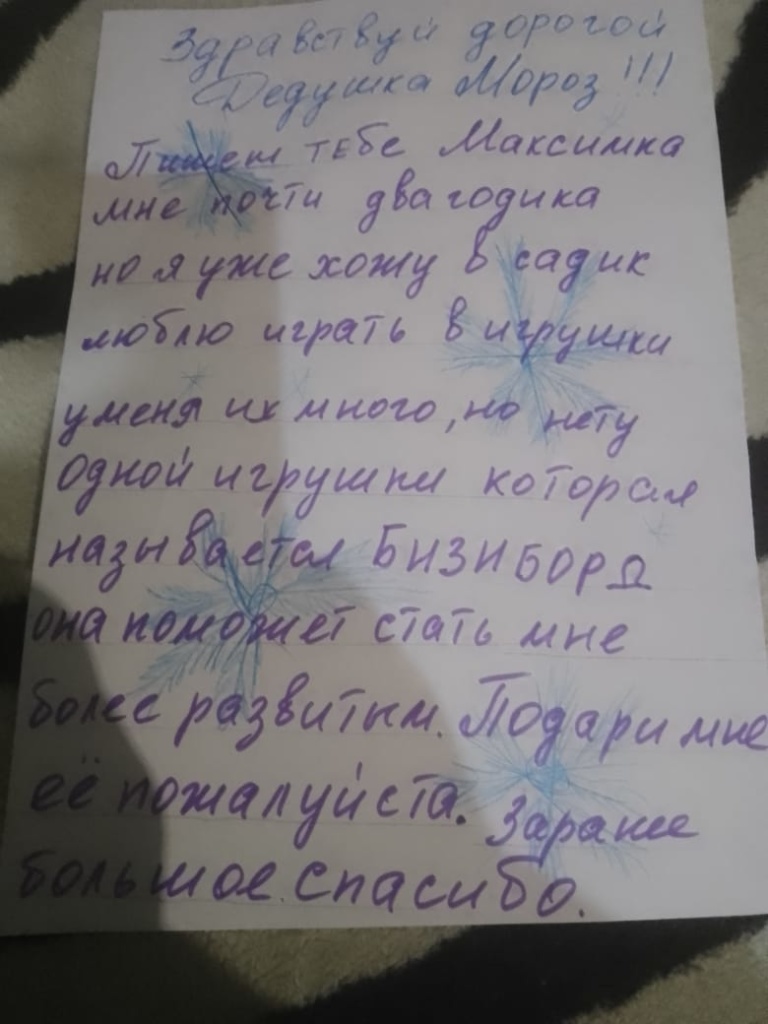 Здравствуй дорогой
Дедушка Мороз!!!
Пишет тебе Максимка
мне почти два годика
но я уже хожу в садик
люблю играть в игрушки
у меня их много, но нету
одной игрушки которая
называется БИЗИБОРД
она поможет стать мне
более развитым. Подари мне
её пожалуйста. Заранее
большое спасибо.